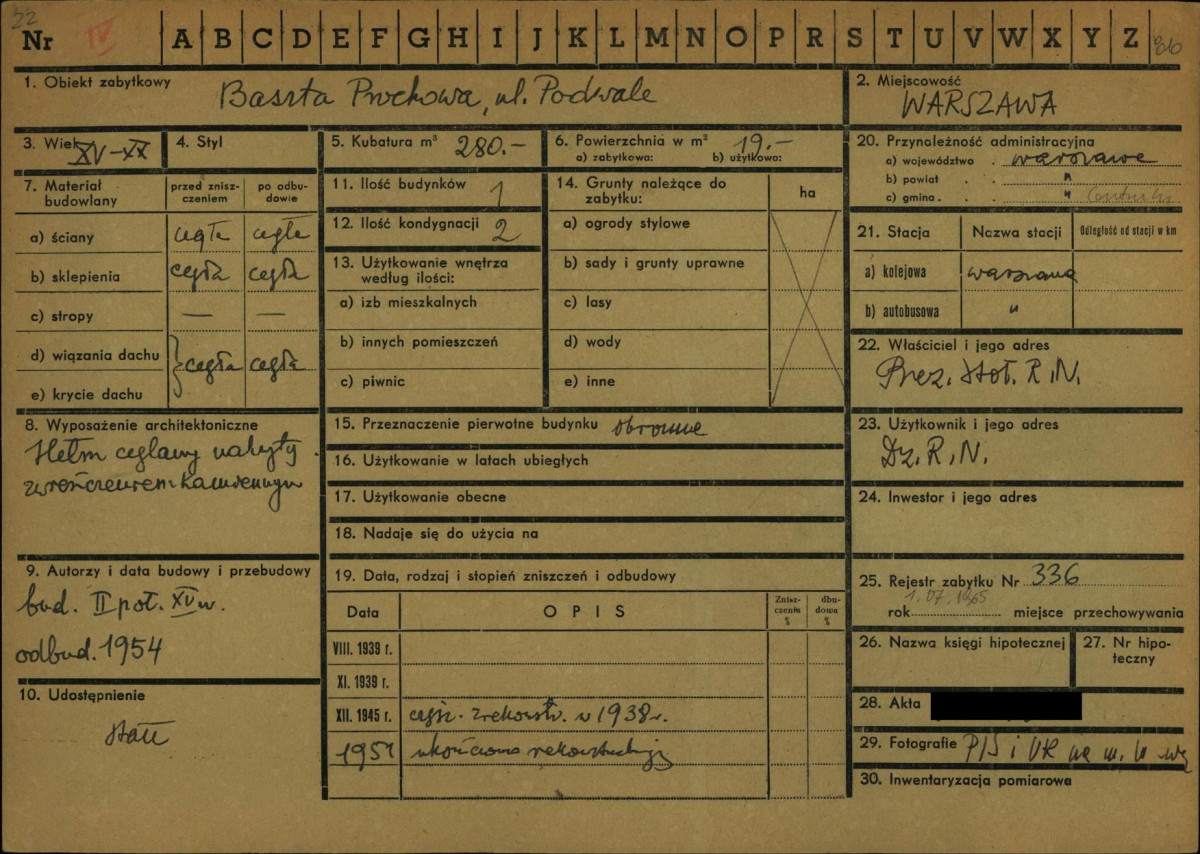 22
Nr IV A B C D E F G H I J K L M N O P R S T U V W X Y Z
1. Obiekt zabytkowy Baszta Prochowa, ul. Podwale
2. Miejscowość
WARSZAWA
3. Wiek XV-XX
4. Styl
5. Kubatura m³ 280.-
6. Powierzchnia w m² 19.-
a) zabytkowa: b) użytkowa:
7. Materiał budowlany
przed zniszczeniem
po odbudowie
a) ściany cegła cegła
b) sklepienia cegła cegła
c) stropy — —
d) wiązania dachu cegła cegła
e) krycie dachu
8. Wyposażenie architektoniczne
Hełm ceglany nakryty
zwieńczeniem kamiennym
9. Autorzy i data budowy i przebudowy
bud. II poł. XV w.
odbud. 1954
10. Udostępnienie
11. Ilość budynków 1
12. Ilość kondygnacji 2
13. Użytkowanie wnętrza
według ilości:
a) izb mieszkalnych
b) innych pomieszczeń
c) piwnic
14. Grunty należące do
zabytku:
ha
a) ogrody stylowe
b) sady i grunty uprawne
c) lasy
d) wody
e) inne
15. Przeznaczenie pierwotne budynku obronne
16. Użytkowanie w latach ubiegłych
17. Użytkowanie obecne
18. Nadaje się do użycia na
19. Data, rodzaj i stopień zniszczeń i odbudowy
Data OPIS Zniszczenia % dbudowa %
VIII. 1939 r.
XI. 1939 r.
XII. 1945 r. częśc. zrekonstr. w 1938 r.
1951 ukończono rekonstrukcję
20. Przynależność administracyjna
a) województwo . warszawa
b) powiat . . "
c) gmina . . . "
21. Stacja Nazwa stacji Odległość od stacji w km
a) kolejowa warszawa
b) autobusowa "
22. Właściciel i jego adres
Prez. Stoł. R.N.
23. Użytkownik i jego adres
Dz. R. N.
24. Inwestor i jego adres
25. Rejestr zabytku Nr 336
rok 1.07.1965 miejsce przechowywania
26. Nazwa księgi hipotecznej
27. Nr hipoteczny
28. Akta
29. Fotografie PIS i UK na m.
30. Inwentaryzacja pomiarowa